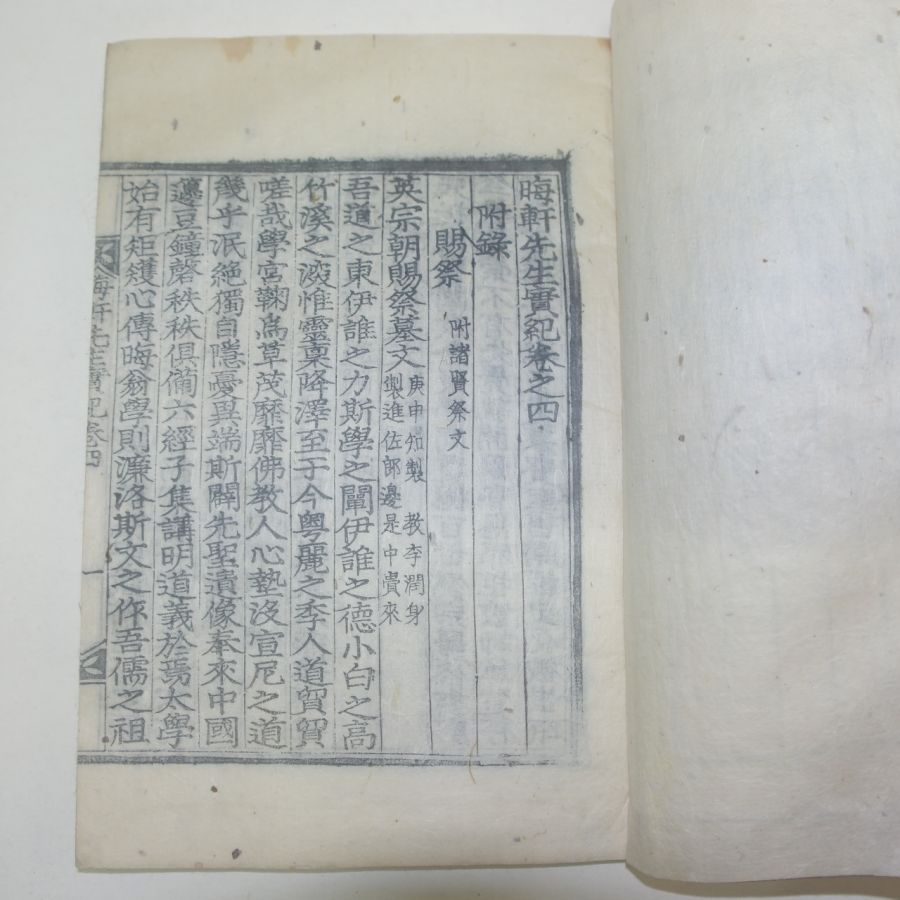 晦軒先生實紀卷之四
附錄
賜祭 附諸賢祭文
英宗朝賜祭墓文 庚申知製 教李潤身
製進佐郎邊是中賷來
吾道之東伊誰之力斯學之闡伊誰之德小白之高
竹溪之深惟靈稟降澤至于今粤麗之季人道貿貿
嗟哉學宮鞠爲草茂靡靡佛教人心墊沒宣尼之道
幾乎泯絶獨自隱憂異端斯闢先聖遺像奉來中國
籩豆鐘磬秩秩俱備六經子集講明道義於焉太學
始有矩矱心傳晦翁學則濂洛斯文之作吾儒之祖
晦軒先生實紀卷四
一